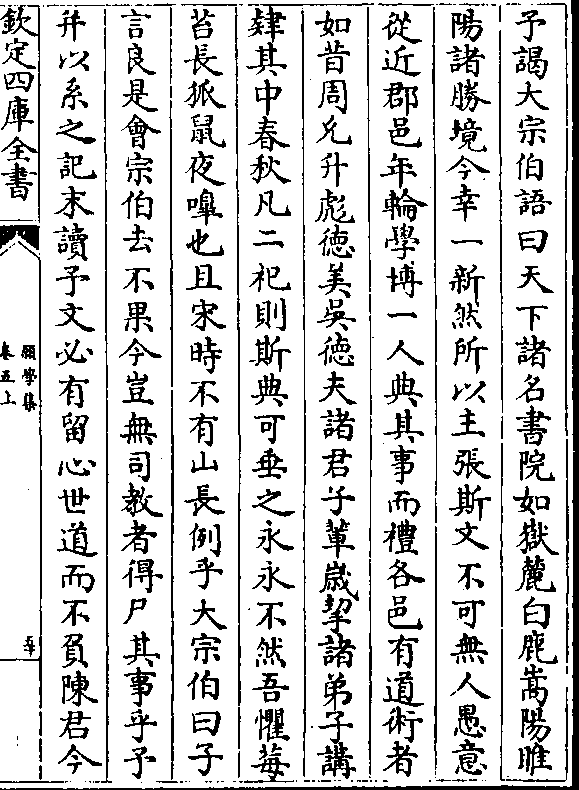 予謁大宗伯語曰天下諸名書院如嶽麓白鹿嵩陽睢
陽諸勝境今幸一新然所以主張斯文不可無人愚意
從近郡邑年輪學博一人典其事而禮各邑有道術者
如昔周允升彪德美吳德夫諸君子輩歲挈諸弟子講
肄其中春秋凡二祀則斯典可垂之永永不然吾懼莓
苔長狐鼠夜嘷也且宋時不有山長例乎大宗伯曰子
言良是會宗伯去不果今豈無司教者得尸其事乎予
并以系之記末讀予文必有留心世道而不負陳君今
欽定四庫全書
願學集
卷五上
五十